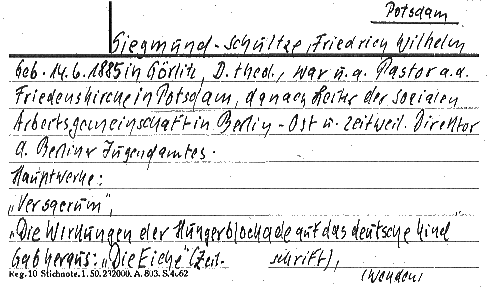 Potsdam
Siegmund-Schultze, Friedrich Wilhelm
Geb. 14.6.1885 in Görlitz, D. theol., war u.a. Pastor a.d.
Friedenskirche in Potsdam, danach Leiter der Sozialen
Arbeitsgemeinschaft in Berlin-Ost u. zeitweil. Direktor
d. Berliner Jugendamtes.
Hauptwerke:
„Ver sacrum",
„Die Wirkungen der Hungerblockade auf das deutsche Kind
Gab heraus: „Die Eiche" (Zeit- schrift),
Reg. 10 Stichnote. 1. 50. 232000. A. 803. S. 4.62
(wenden)